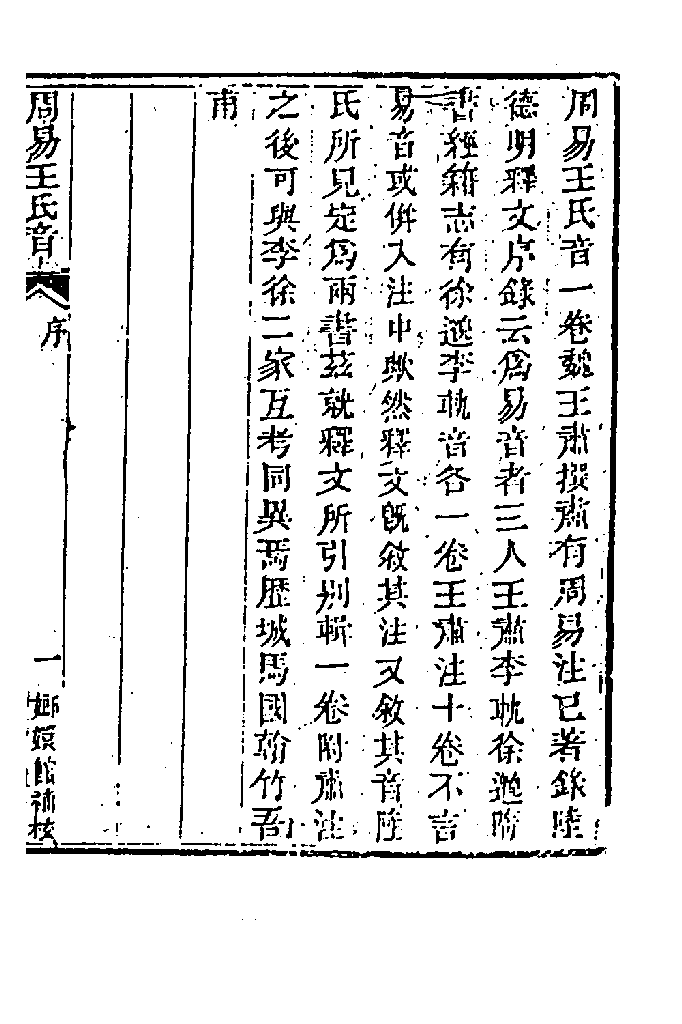 周易王氏音一卷魏王肅撰肅有周易注已著錄陸
德明釋文序錄云爲易音者三人王肅李軌徐邈隋
書經籍志有徐邈李軌音各一卷王肅注十卷不言
易音或倂入注中歟然釋文旣敘其注又敘其音陸
氏所見定爲兩書茲就釋文所引别輯一卷附肅注
之後可與李徐二家互考同異焉歷城馬國翰竹吾
甫
周易王氏音
序
一
嫏嬛館補校